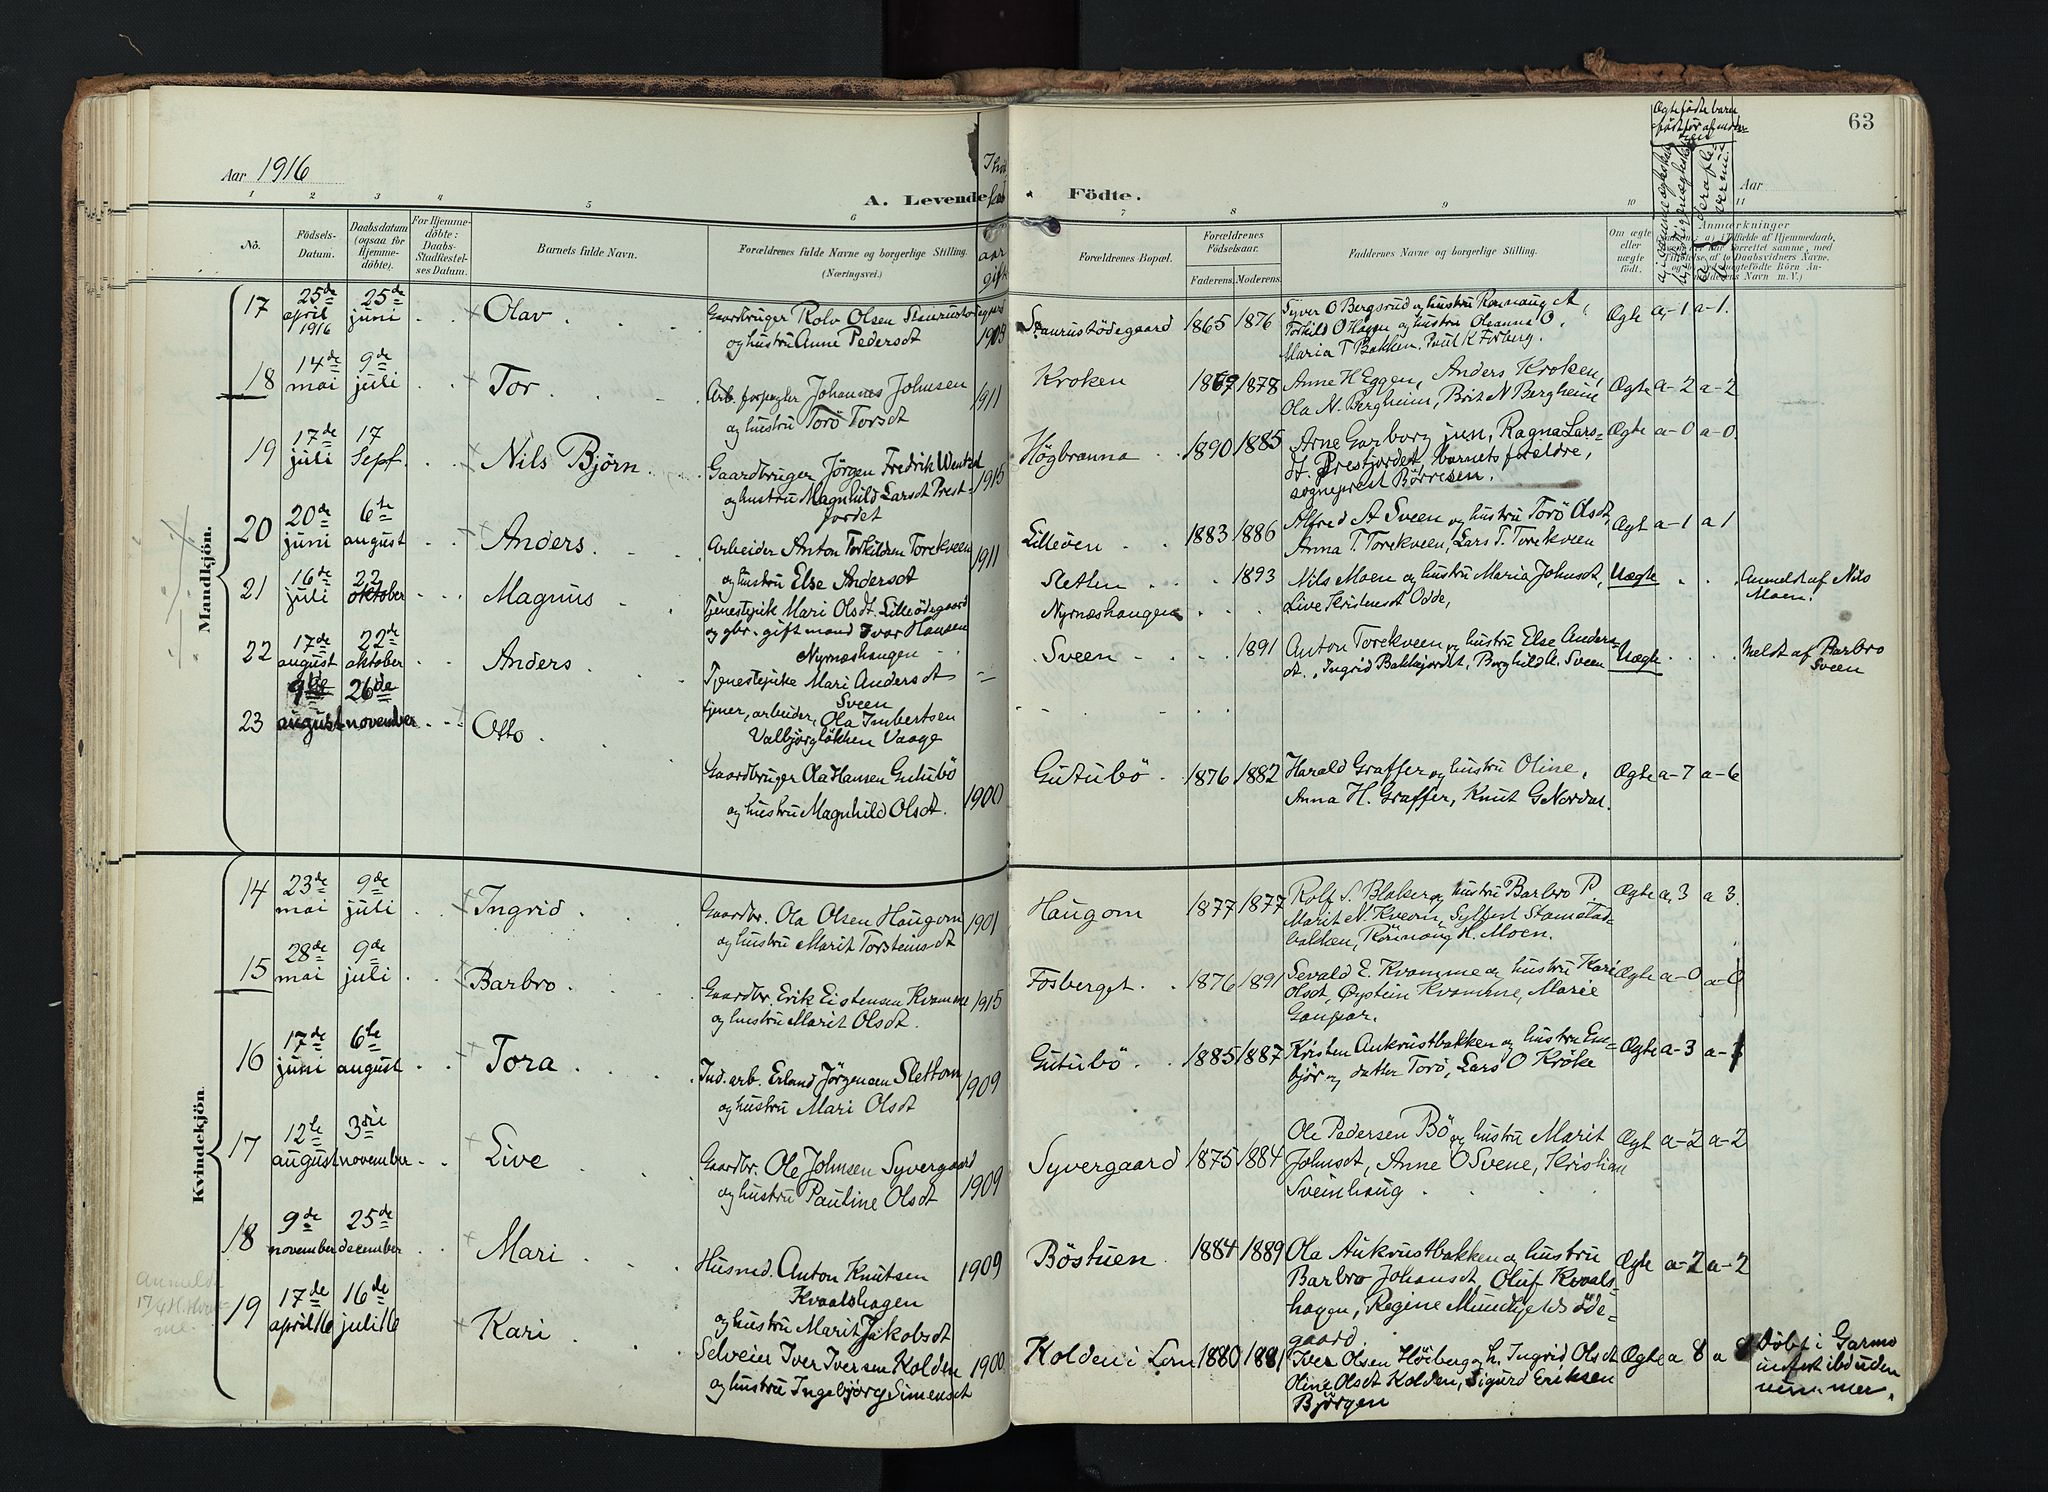 Aar 1916
A. Levende Födte.
63
Aar
1 2 3 4 5 6 7 8 9 10 11
No.
Födsels-Datum.
Daabsdatum (ogsaa for Hjemmedöbte).
For Hjemmedöbte: Daabs-Stadfæstelses Datum.
Barnets fulde Navn.
Forældrenes fulde Navne og borgerlige Stilling.
(Næringsvei.)
aar gift
Forældrenes Bopæl.
Forældrenes Födselsaar.
Faderens. Moderens.
Faddernes Navne og borgerlige Stilling.
Om ægte eller uægte födt.
Anmærkninger
Mandkjön.
17 25de april 1916 25de juni Olav
Gaardbruger Rolv Olsen
og hustru Anne Pedersdt 1909
Staurustödegaard 1865 1876
Syver O Bergsrud og hustru Rønnaug
Torkild O Hagen og hustru Oleanna O.
Maria T Bakken. Paul K Forberg.
Ægte a-1 a-1.
18 14de mai 9de juli Tor
Arb. forpagter Johannes Johnsen
og hustru Torö Torsdt 1911
Kroken 1869 1878
Anne H Eggen, Anders Kroken,
Ola N. Bergheim, Brit N Bergheim
Ægte a-2 a-2
19 17de juli 17 Sept. Nils Bjørn
Gaardbruger Jörgen Fredrik Wentzel
og hustru Magnhild Larsdt Prest-
jordet 1915
Högbrenna 1890 1885
Arne Garborg jun, Ragna Lars-
dt. Prestjordet, barnets foreldre,
sogneprest Börresen.
Ægte a-0 a-0.
20 20de juni 6te august Anders
Arbeider Anton Torkildsen Torekveen
og hustru Else Andersdt 1911
Lilleöen 1883 1886
Alfred A Sveen og hustru Torö Olsdt,
Anna T. Torekveen, Lars T. Torekveen
Ægt a-1 a 1
21 16de juli 22 oktober Magnus
Tjenestepike Mari Olsdt Lilleödegaard
og gbr. gift mand Ivar Hansen
Nyrnæshaugen
Sletten 1893
Nyrnæshaugen
Nils Moen og hustru Maria Johnsdt,
Live Kristensdt Odde,
Uægte
Anmeldt af Nils
Moen.
22 17de august 22de oktober Anders
Tjenestepike Mari Andersdt
Sveen
tjener, arbeider, Ola Imbertsen
Valbjörgløkken Vaage
Sveen 1891
Anton Torekveen og hustru Else Anders-
dt., Ingrid Bakkejordet, Borghild K. Sveen
Uægte
Meldt af Barbro
Sveen
23 9de august 26de november Otto
Gaardbruger Ola Hansen Gutubö
og hustru Magnhild Olsdt. 1900
Gutubö 1876 1882
Harald Graffer og hustru Oline,
Anna H. Graffer, Knut G Nordal.
Ægte a-7 a-6
Kvindekjön.
14 23de mai 9de juli Ingrid
Gaardbr. Ola Olsen Haugom
og hustru Marit Torsteinsdt 1901
Haugom 1877 1877
Rolf S. Blaker og hustru Barbro P.
Marit N Kvern, Sylfest Stamstad-
bakken, Rönnaug H. Moen.
Ægte a 3 a 3.
15 28de mai 9de juli Barbro
Gaardbr. Erik Eistensen Kvamme
og hustru Marit Olsdt. 1915
Fosberget 1876 1891
Sevald E. Kvamme og hustru Kari
Olsdt, Øystein Kvamme, Marie
Gaupar.
Ægte a-0 a-0
16 17de juni 6te august Tora
Ind. arb. Erland Jörgensen Slettom
og hustru Mari Olsdt 1909
Gutubö 1885 1887
Kristen Aukrustbakken og hustru Em-
björ og datter Torö, Lars O Kröke
Ægte a-3 a-3
17 12te august 3die november Live
Gaardbr. Ole Johnsen Syvergaard
og hustru Pauline Olsdt 1909
Syvergaard 1875 1884
Ole Pedersen Bö og hustru Marit
Johnsdt, Anne O Svene, Kristian
Sveinhaug
Ægt a-2 a-2
18 9de november 25de december Mari
Husmd. Anton Knutsen
Kvaalshagen
og hustru Marit Jakobsdt 1909
Böstuen 1884 1889
Ola Aukrustbakken og hustru
Barbro Johansdt, Oluf Kvaals-
hagen, Regine Mundhjelds öde-
gaard
Ægte a-2 a-2
19 17de april 16 16de juli 16 Kari
Selveier Iver Iversen Kolden
og hustru Ingebjörg Simensdt 1900
Kolden i Lom 1880 1881
Iver Olsen Höiberg og h. Ingrid Olsdt
Oline Olsdt Kolden, Sigurd Eriksen
Björgen
Ægte a 8 a 8
Döbt i Garmo
indført ibd uden
nummer.